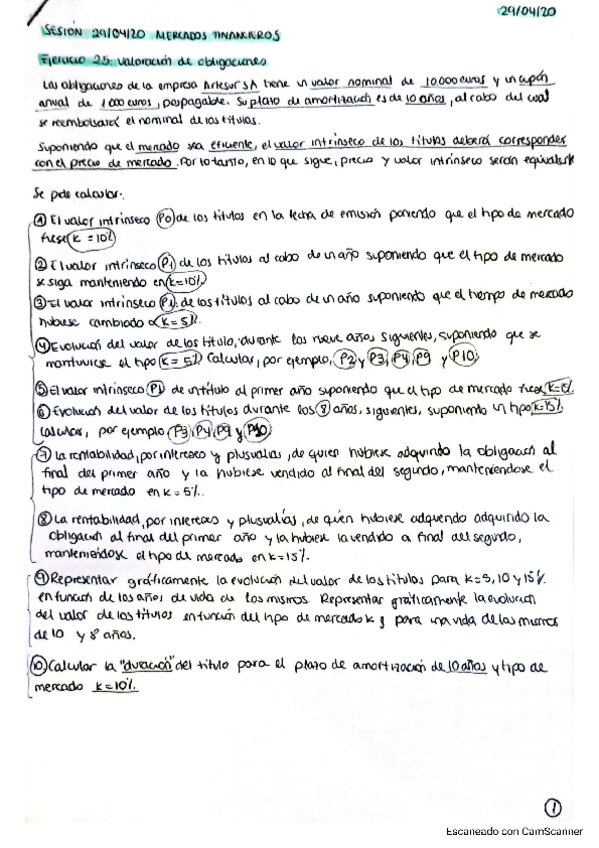 29/04/20
SESIÓN 29/04/20 MERCADOS FINANCIEROS
Ejercicio 25: valoración de obligaciones
Las obligaciones de la empresa Artesur SA tiene un valor nominal de 10.000 euros y un cupón
anual de 1.000 euros, pospagable. Su plazo de amortización es de 10 años, al cabo del cual
se reembolsará el nominal de los títulos.
Suponiendo que el mercado sea eficiente, el valor intrínseco de los títulos deberá corresponder
con el precio de mercado. Por lo tanto, en lo que sigue, precio y valor intrínseco serán equivalente
Se pide calcular:
① El valor intrínseco (P0) de los títulos en la fecha de emisión poniendo que el tipo de mercado
fuese K = 10%
② El valor intrínseco (P1) de los títulos al cabo de un año suponiendo que el tipo de mercado
se siga manteniendo en K=10%
③ El valor intrínseco (P1) de los títulos al cabo de un año suponiendo que el tiempo de mercado
hubiese cambiado a K=5%.
④ Evolución del valor de los título, durante los nueve años siguientes, suponiendo que se
mantuviese el tipo K=5%. Calcular, por ejemplo, P2 y P3, P4, P9 y P10
⑤ El valor intrínseco (P1) de un título al primer año suponiendo que el tipo de mercado fuese K=15%
⑥ Evolución del valor de los títulos durante los 8 años, siguientes, suponiendo un tipo K=15%
calcular, por ejemplo P3, P4, P9 y P10
⑦ La rentabilidad, por intereses y plusvalías, de quien hubiese adquirido la obligación al
final del primer año y la hubiese vendido al final del segundo, manteniéndose el
tipo de mercado en K=5%.
⑧ La rentabilidad, por intereses y plusvalías, de quien hubiese adquirido la
obligación al final del primer año y la hubiese vendido a final del segundo,
manteniéndose el tipo de mercado en K=15%.
⑨ Representar gráficamente la evolución del valor de los títulos para K=5, 10 y 15%
en función de los años de vida de los mismos. Representar gráficamente la evolución
del valor de los títulos en función del tipo de mercado K y para una vida de los mismos
de 10 y 8 años.
⑩ Calcular la "duración" del título para el plazo de amortización de 10 años y tipo de
mercado K=10%.
①
Escaneado con CamScanner